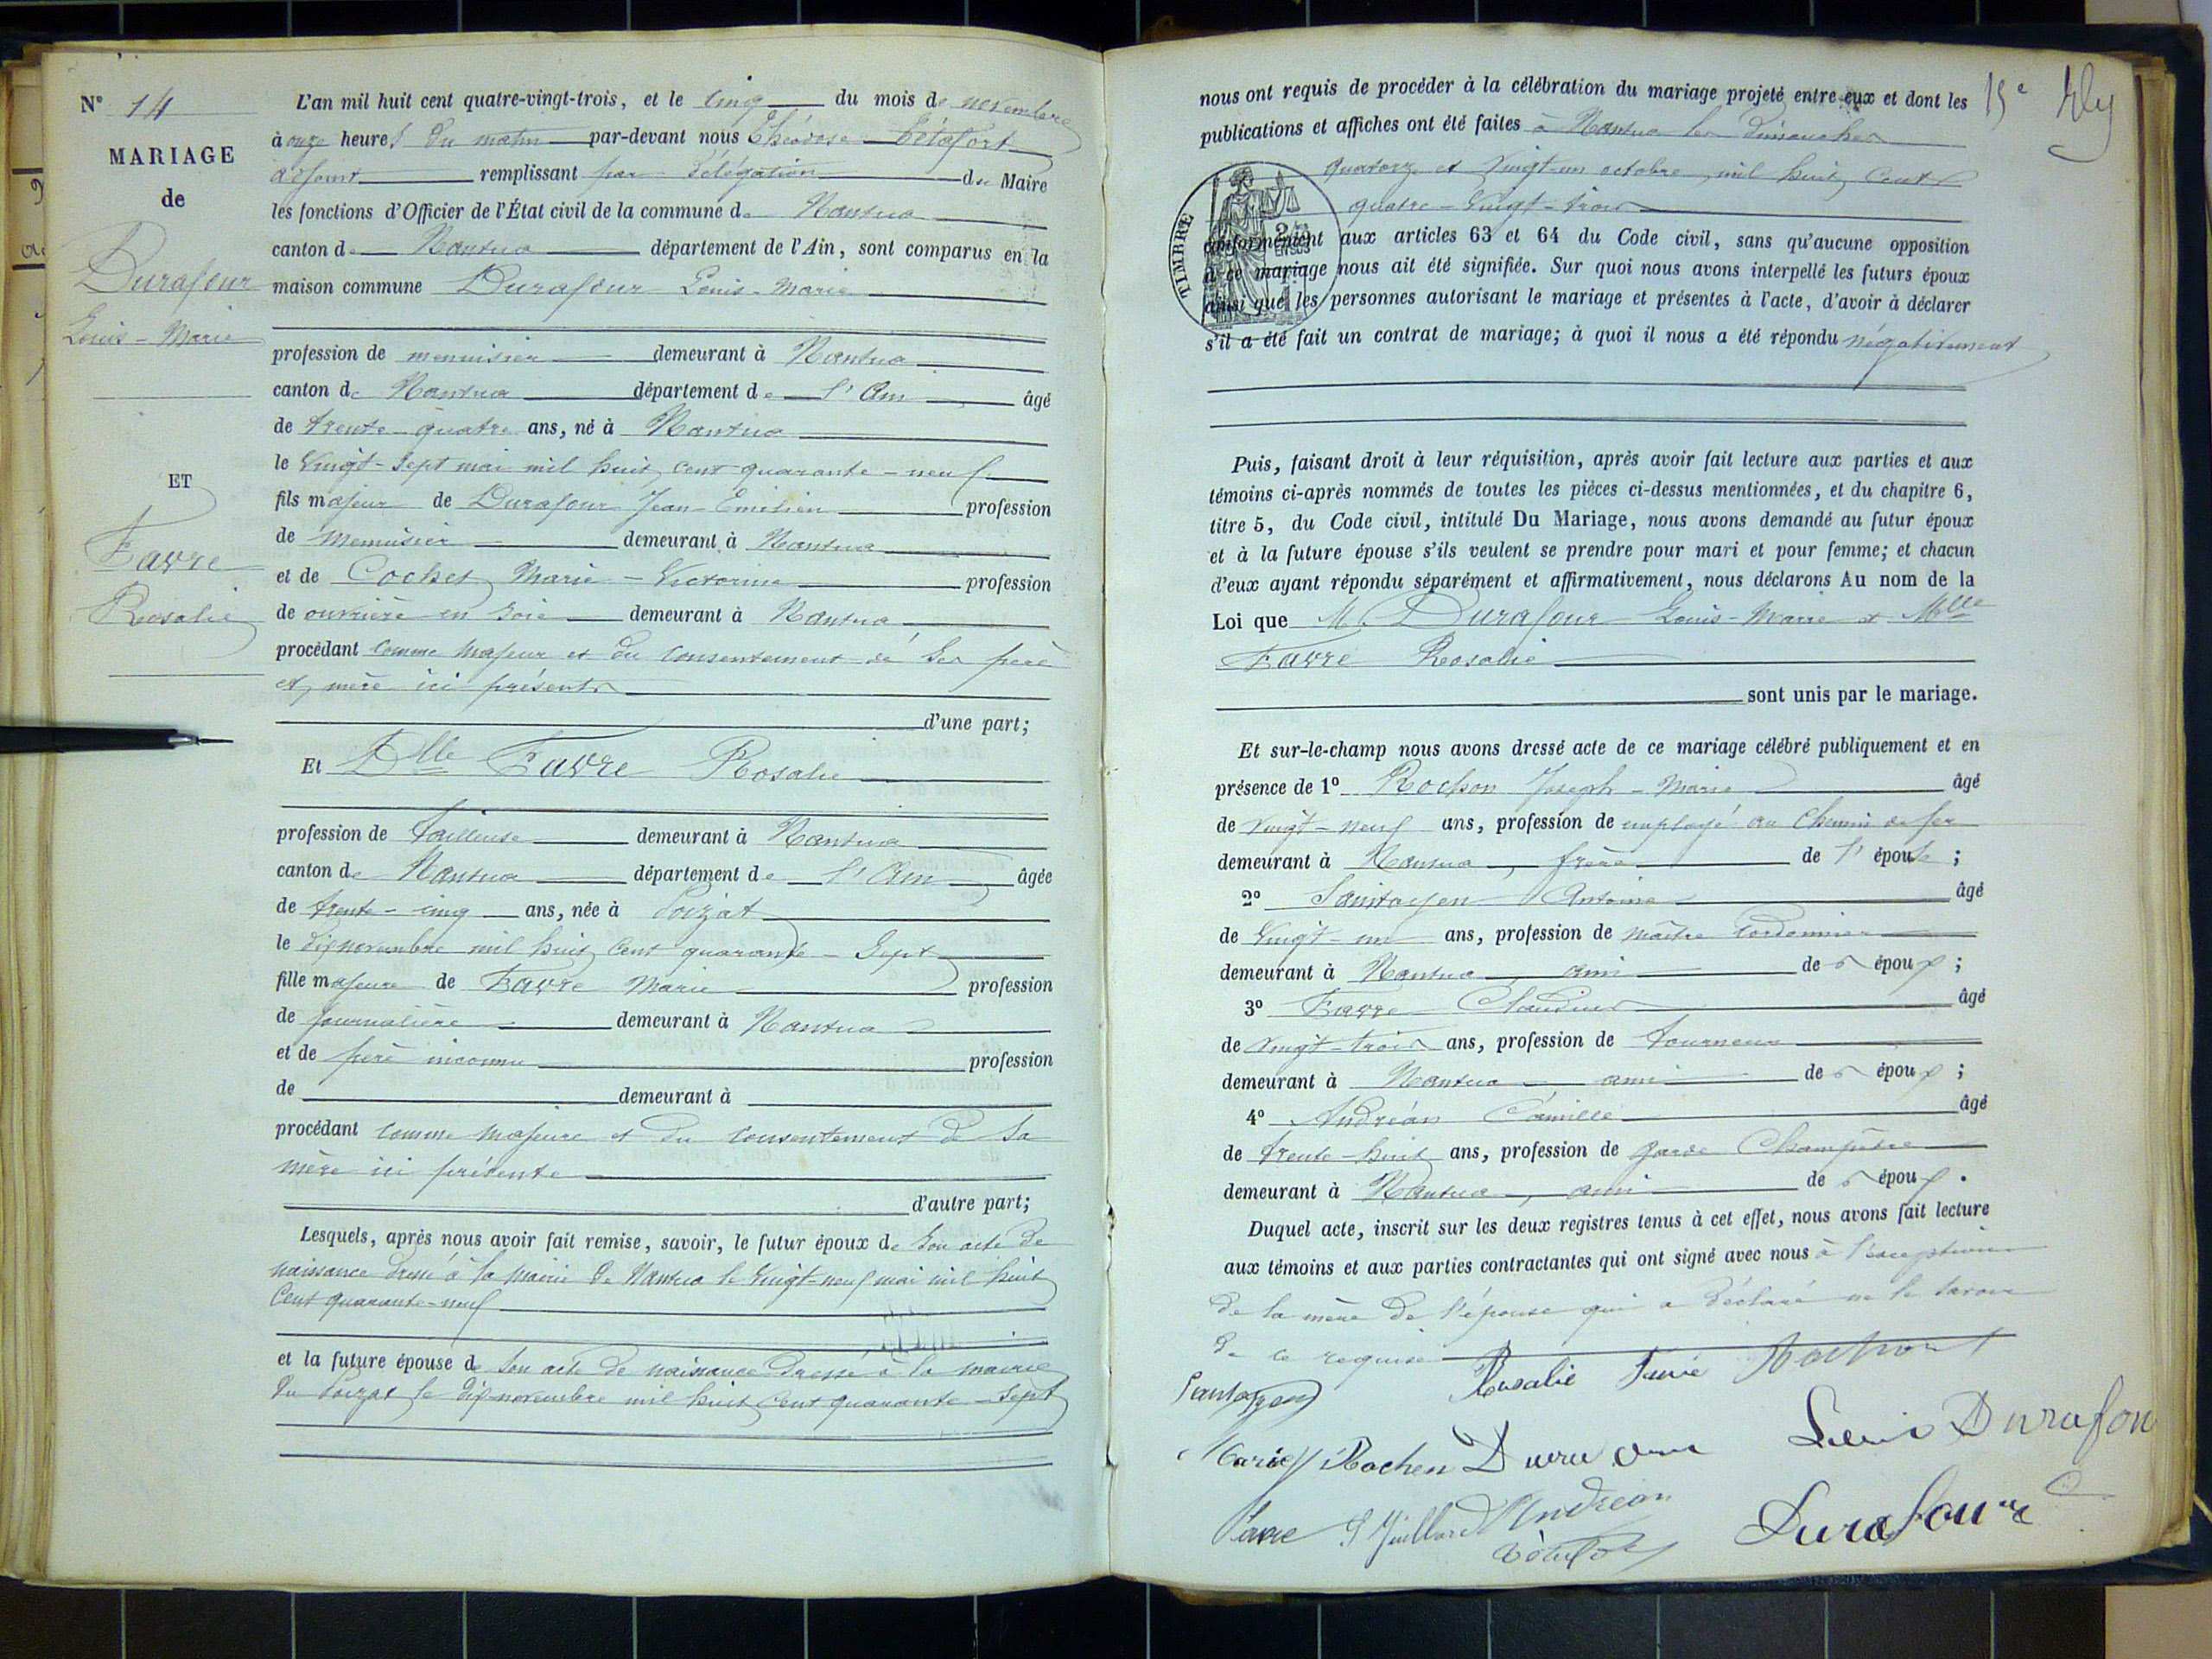 N° 14
MARIAGE
de
Durafour
Louis - Marie
ET
Favre
Rosalie
L'an mil huit cent quatre-vingt-trois, et le cinq du mois de novembre
à onze heures du matin par-devant nous Théodose Tétafort
adjoint remplissant par délégation du Maire
les fonctions d'Officier de l'État civil de la commune de Nantua
canton de Nantua département de l'Ain, sont comparus en la
maison commune Durafour Louis-Marie
profession de menuisier demeurant à Nantua
canton de Nantua département de l'Ain âgé
de trente-quatre ans, né à Nantua
le vingt-sept mai mil huit cent quarante-neuf
fils majeur de Durafour Jean-Emilien profession
de menuisier demeurant à Nantua
et de Cochet Marie-Victorine profession
de ouvrière en soie demeurant à Nantua
procédant comme majeur et du consentement de ses père
et mère ici présents
d'une part;
Et Dlle Favre Rosalie
profession de tailleuse demeurant à Nantua
canton de Nantua département de l'Ain âgée
de trente-cinq ans, née à Poizat
le dix novembre mil huit cent quarante-sept
fille majeure de Favre Marie profession
de journalière demeurant à Nantua
et de père inconnu profession
de demeurant à
procédant comme majeure et du consentement de sa
mère ici présente
d'autre part;
Lesquels, après nous avoir fait remise, savoir, le futur époux de son acte de
naissance dressé à la mairie de Nantua le vingt-neuf mai mil huit
cent quarante-neuf
et la future épouse de son acte de naissance dressé à la mairie
du Poizat le dix novembre mil huit cent quarante-sept
15e
nous ont requis de procéder à la célébration du mariage projeté entre eux et dont les
publications et affiches ont été faites à Nantua les dimanches
quatorze et vingt-un octobre mil huit cent
quatre-vingt-trois
TIMBRE
conformément aux articles 63 et 64 du Code civil, sans qu'aucune opposition
à ce mariage nous ait été signifiée. Sur quoi nous avons interpellé les futurs époux
ainsi que les personnes autorisant le mariage et présentes à l'acte, d'avoir à déclarer
s'il a été fait un contrat de mariage; à quoi il nous a été répondu négativement
Puis, faisant droit à leur réquisition, après avoir fait lecture aux parties et aux
témoins ci-après nommés de toutes les pièces ci-dessus mentionnées, et du chapitre 6,
titre 5, du Code civil, intitulé Du Mariage, nous avons demandé au futur époux
et à la future épouse s'ils veulent se prendre pour mari et pour femme; et chacun
d'eux ayant répondu séparément et affirmativement, nous déclarons Au nom de la
Loi que M. Durafour Louis-Marie et Mlle
Favre Rosalie
sont unis par le mariage.
Et sur-le-champ nous avons dressé acte de ce mariage célébré publiquement et en
présence de 1° Rochon Joseph-Marie âgé
de vingt-neuf ans, profession de employé au chemin de fer
demeurant à Nantua, frère de l'épouse;
2° Saintoyen Antoine âgé
de vingt-un ans, profession de maître cordonnier
demeurant à Nantua, ami des époux;
3° Favre Claudius âgé
de vingt-trois ans, profession de tourneur
demeurant à Nantua ami des époux;
4° Andréan Camille âgé
de trente-huit ans, profession de garde champêtre
demeurant à Nantua, ami des époux.
Duquel acte, inscrit sur les deux registres tenus à cet effet, nous avons fait lecture
aux témoins et aux parties contractantes qui ont signé avec nous à l'exception
de la mère de l'épouse qui a déclaré ne le savoir
de ce requise
Rosalie Favre Rochon
Santoyen
Marie Rochon Louis Durafour
Favre Andréan
Durafour
Tétafort